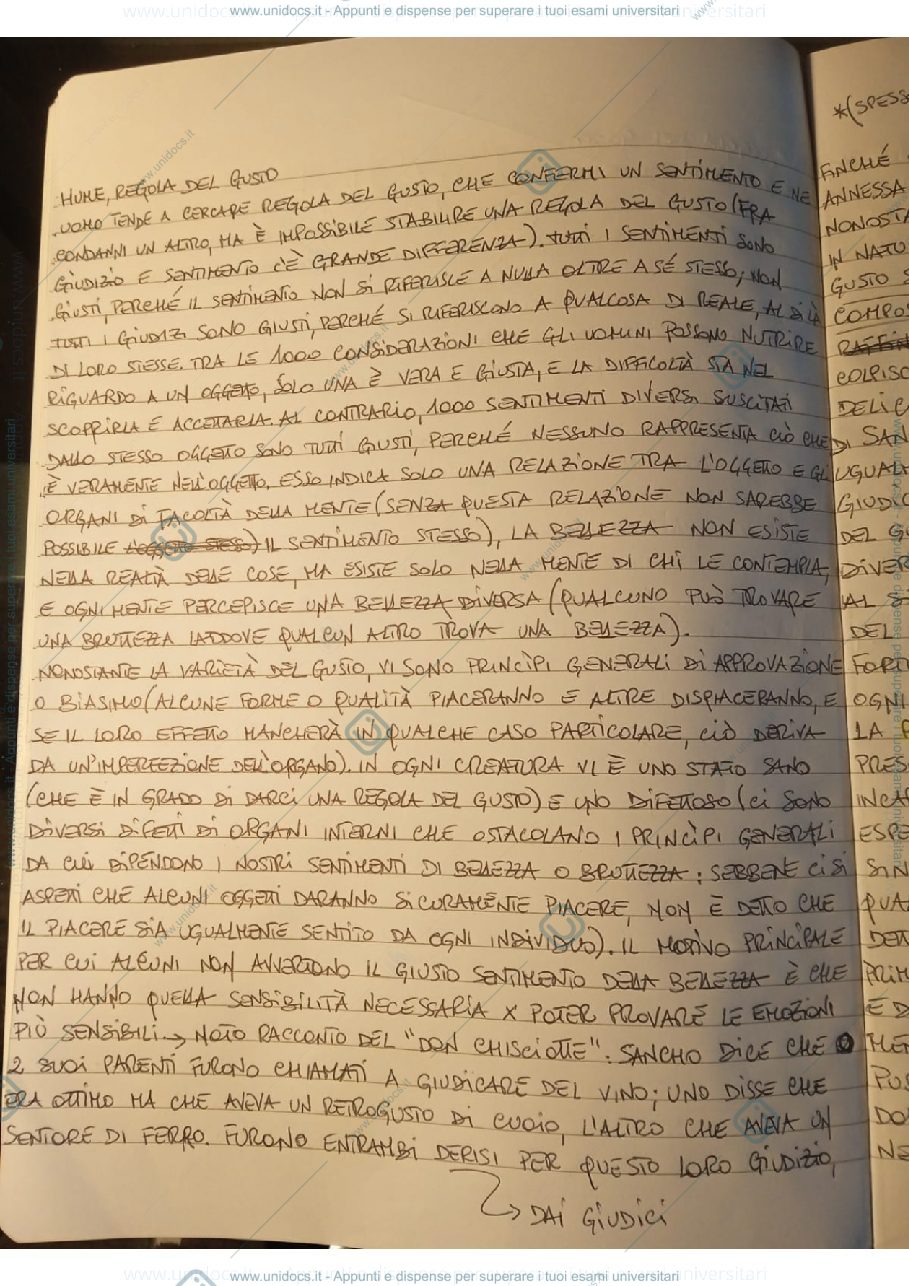 www.unidocs.it - Appunti e dispense per superare i tuoi esami universitari
HUME, REGOLA DEL GUSTO
UOMO TENDE A CERCARE REGOLA DEL GUSTO, CHE CONFERMI UN SENTIMENTO E NE
CONDANNI UN ALTRO, MA È IMPOSSIBILE STABILIRE UNA REGOLA DEL GUSTO (FRA
GIUDIZIO E SENTIMENTO C'È GRANDE DIFFERENZA). TUTTI I SENTIMENTI SONO
GIUSTI, PERCHÉ IL SENTIMENTO NON SI RIFERISCE A NULLA OLTRE A SÉ STESSO; NON
TUTTI I GIUDIZI SONO GIUSTI, PERCHÉ SI RIFERISCONO A QUALCOSA DI REALE, AL DI LÀ
DI LORO STESSE. TRA LE 1000 CONSIDERAZIONI CHE GLI UOMINI POSSONO NUTRIRE
RIGUARDO A UN OGGETTO, SOLO UNA È VERA E GIUSTA, E LA DIFFICOLTÀ STA NEL
SCOPRIRLA E ACCETTARLA. AL CONTRARIO, 1000 SENTIMENTI DIVERSI SUSCITATI
DALLO STESSO OGGETTO SONO TUTTI GIUSTI, PERCHÉ NESSUNO RAPPRESENTA CIÒ CHE
È VERAMENTE NELL'OGGETTO, ESSO INDICA SOLO UNA RELAZIONE TRA L'OGGETTO E GLI
ORGANI DI FACOLTÀ DELLA MENTE (SENZA QUESTA RELAZIONE NON SAREBBE
POSSIBILE IL SENTIMENTO STESSO), LA BELLEZZA NON ESISTE
NELLA REALTÀ DELLE COSE, MA ESISTE SOLO NELLA MENTE DI CHI LE CONTEMPLA,
E OGNI MENTE PERCEPISCE UNA BELLEZZA DIVERSA (QUALCUNO PUÒ TROVARE
UNA BRUTTEZZA LADDOVE QUALCUN ALTRO TROVA UNA BELLEZZA).
NONOSTANTE LA VARIETÀ DEL GUSTO, VI SONO PRINCÌPI GENERALI DI APPROVAZIONE
O BIASIMO (ALCUNE FORME O QUALITÀ PIACERANNO E ALTRE DISPIACERANNO, E
SE IL LORO EFFETTO MANCHERÀ IN QUALCHE CASO PARTICOLARE, CIÒ DERIVA
DA UN'IMPERFEZIONE DELL'ORGANO). IN OGNI CREATURA VI È UNO STATO SANO
(CHE È IN GRADO DI DARCI UNA REGOLA DEL GUSTO) E UNO DIFETTOSO (CI SONO
DIVERSI DIFETTI DI ORGANI INTERNI CHE OSTACOLANO I PRINCÌPI GENERALI
DA CUI DIPENDONO I NOSTRI SENTIMENTI DI BELLEZZA O BRUTTEZZA; SEBBENE CI SI
ASPETTI CHE ALCUNI OGGETTI DARANNO SICURAMENTE PIACERE, NON È DETTO CHE
IL PIACERE SIA UGUALMENTE SENTITO DA OGNI INDIVIDUO). IL MOTIVO PRINCIPALE
PER CUI ALCUNI NON AVVERTONO IL GIUSTO SENTIMENTO DELLA BELLEZZA È CHE
NON HANNO QUELLA SENSIBILITÀ NECESSARIA X POTER PROVARE LE EMOZIONI
PIÙ SENSIBILI → NOTO RACCONTO DEL "DON CHISCIOTTE": SANCHO DICE CHE
2 SUOI PARENTI FURONO CHIAMATI A GIUDICARE DEL VINO; UNO DISSE CHE
ERA OTTIMO MA CHE AVEVA UN RETROGUSTO DI CUOIO, L'ALTRO CHE AVEVA UN
SENTORE DI FERRO. FURONO ENTRAMBI DERISI PER QUESTO LORO GIUDIZIO,
→ DAI GIUDICI
*(SPESS
ANCHÉ
ANNESSA
NONOSTA
IN NATU
GUSTO S
COMPOS
RAFFIN
COLPISC
DELIC
DI SAN
UGUAL
GIUDIC
DEL G
DIVER
AL
DEL
FORT
OGNI
LA
PRES
INCA
ESPE
SIN
QUA
DET
PRIM
E D
ME
PUS
DO
NE
www.unidocs.it - Appunti e dispense per superare i tuoi esami universitari